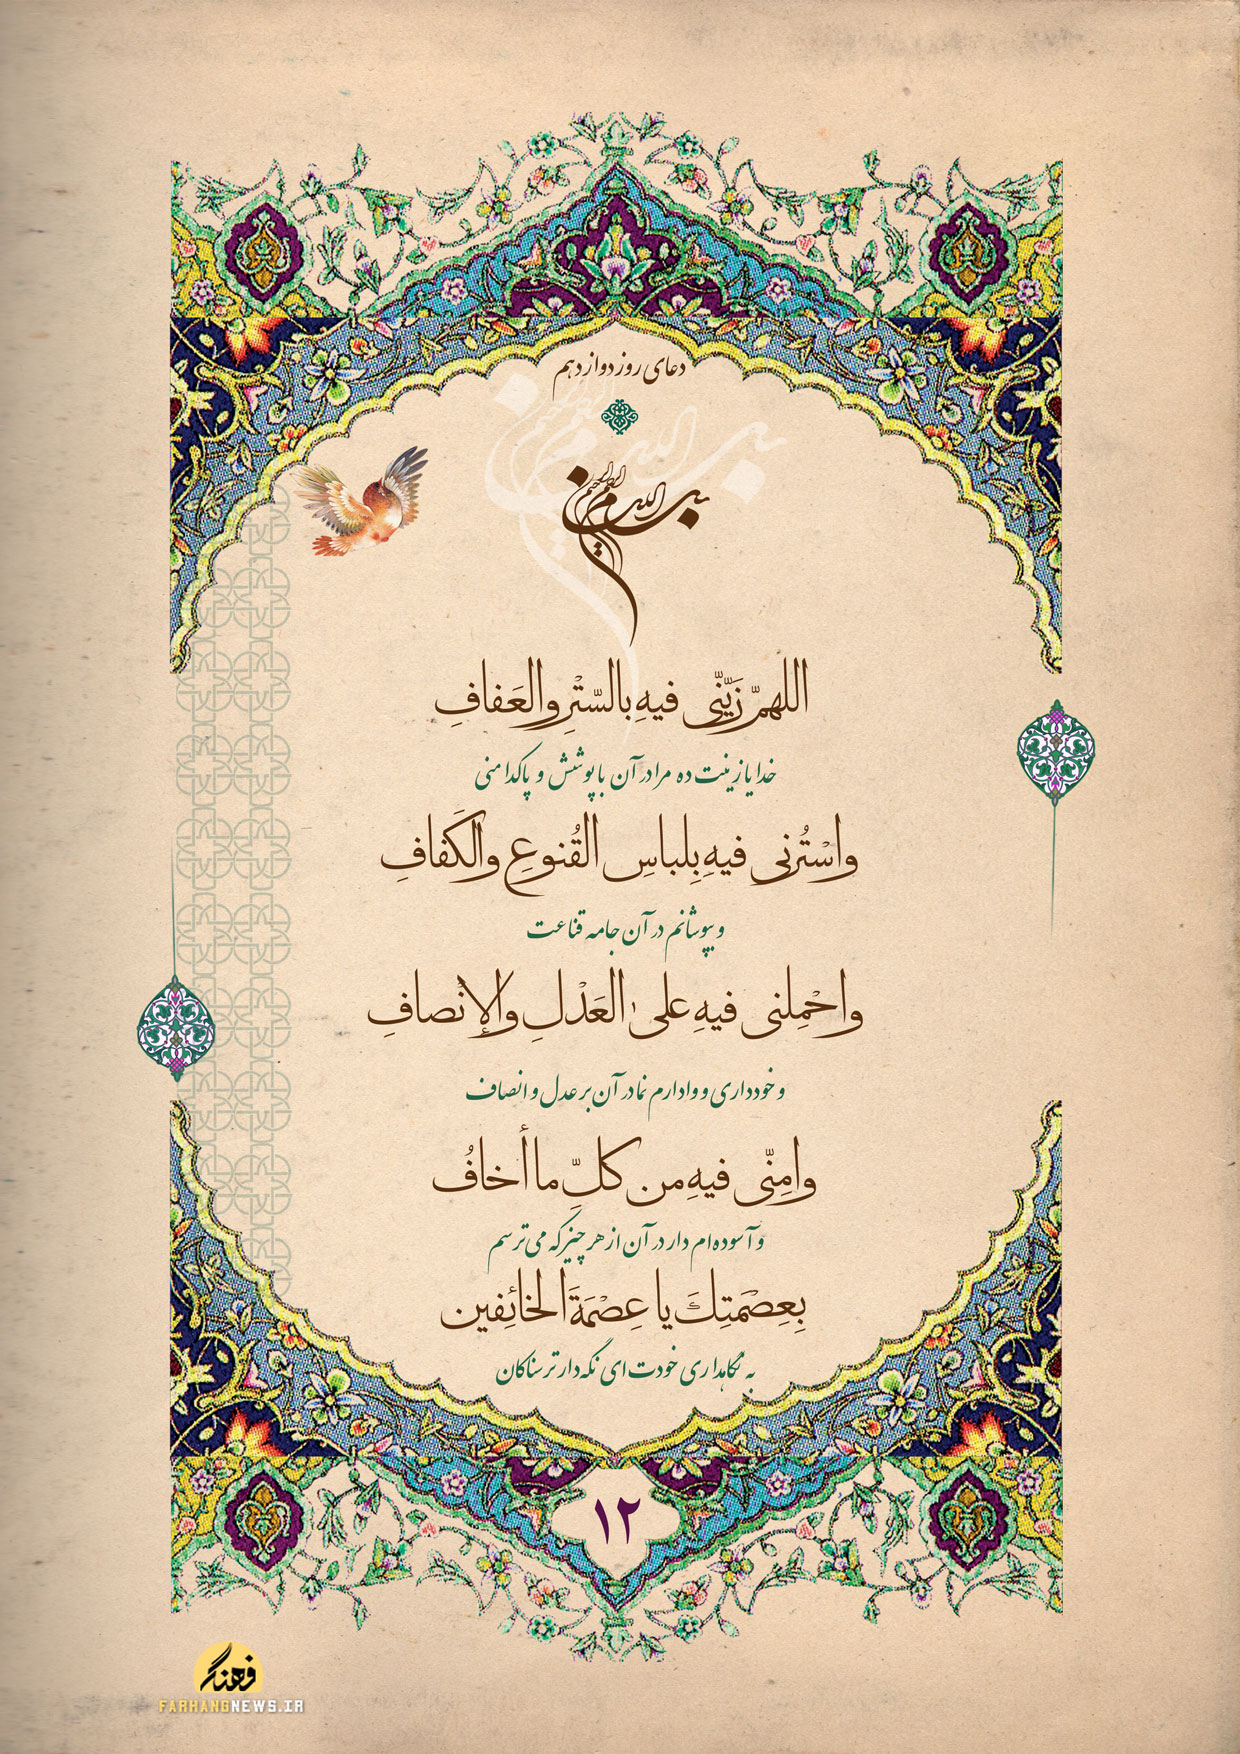 دعای روز دوازدهم
بسم الله الرحمن الرحیم
اللهمّ زَیّنّی فیهِ بالسّتْرِ والعَفافِ
خدایا زینت ده مرا در آن با پوشش و پاکدامنی
واسْتُرنی فیهِ بِلِباسِ القُنوعِ والکَفافِ
و بپوشانم در آن جامه قناعت
واحْمِلنی فیهِ علی العَدْلِ والإنْصافِ
و خودداری و وادارم نما در آن بر عدل و انصاف
وامِنّی فیهِ من کلِّ ما أخافُ
و آسوده‌ام دار در آن از هر چیز که می‌ترسم
بِعِصْمَتِکَ یا عِصْمَةَ الخائِفین
به نگاهداری خودت ای نگه‌دار ترسناکان
۱۲
فرهنگ
FARHANGNEWS.IR